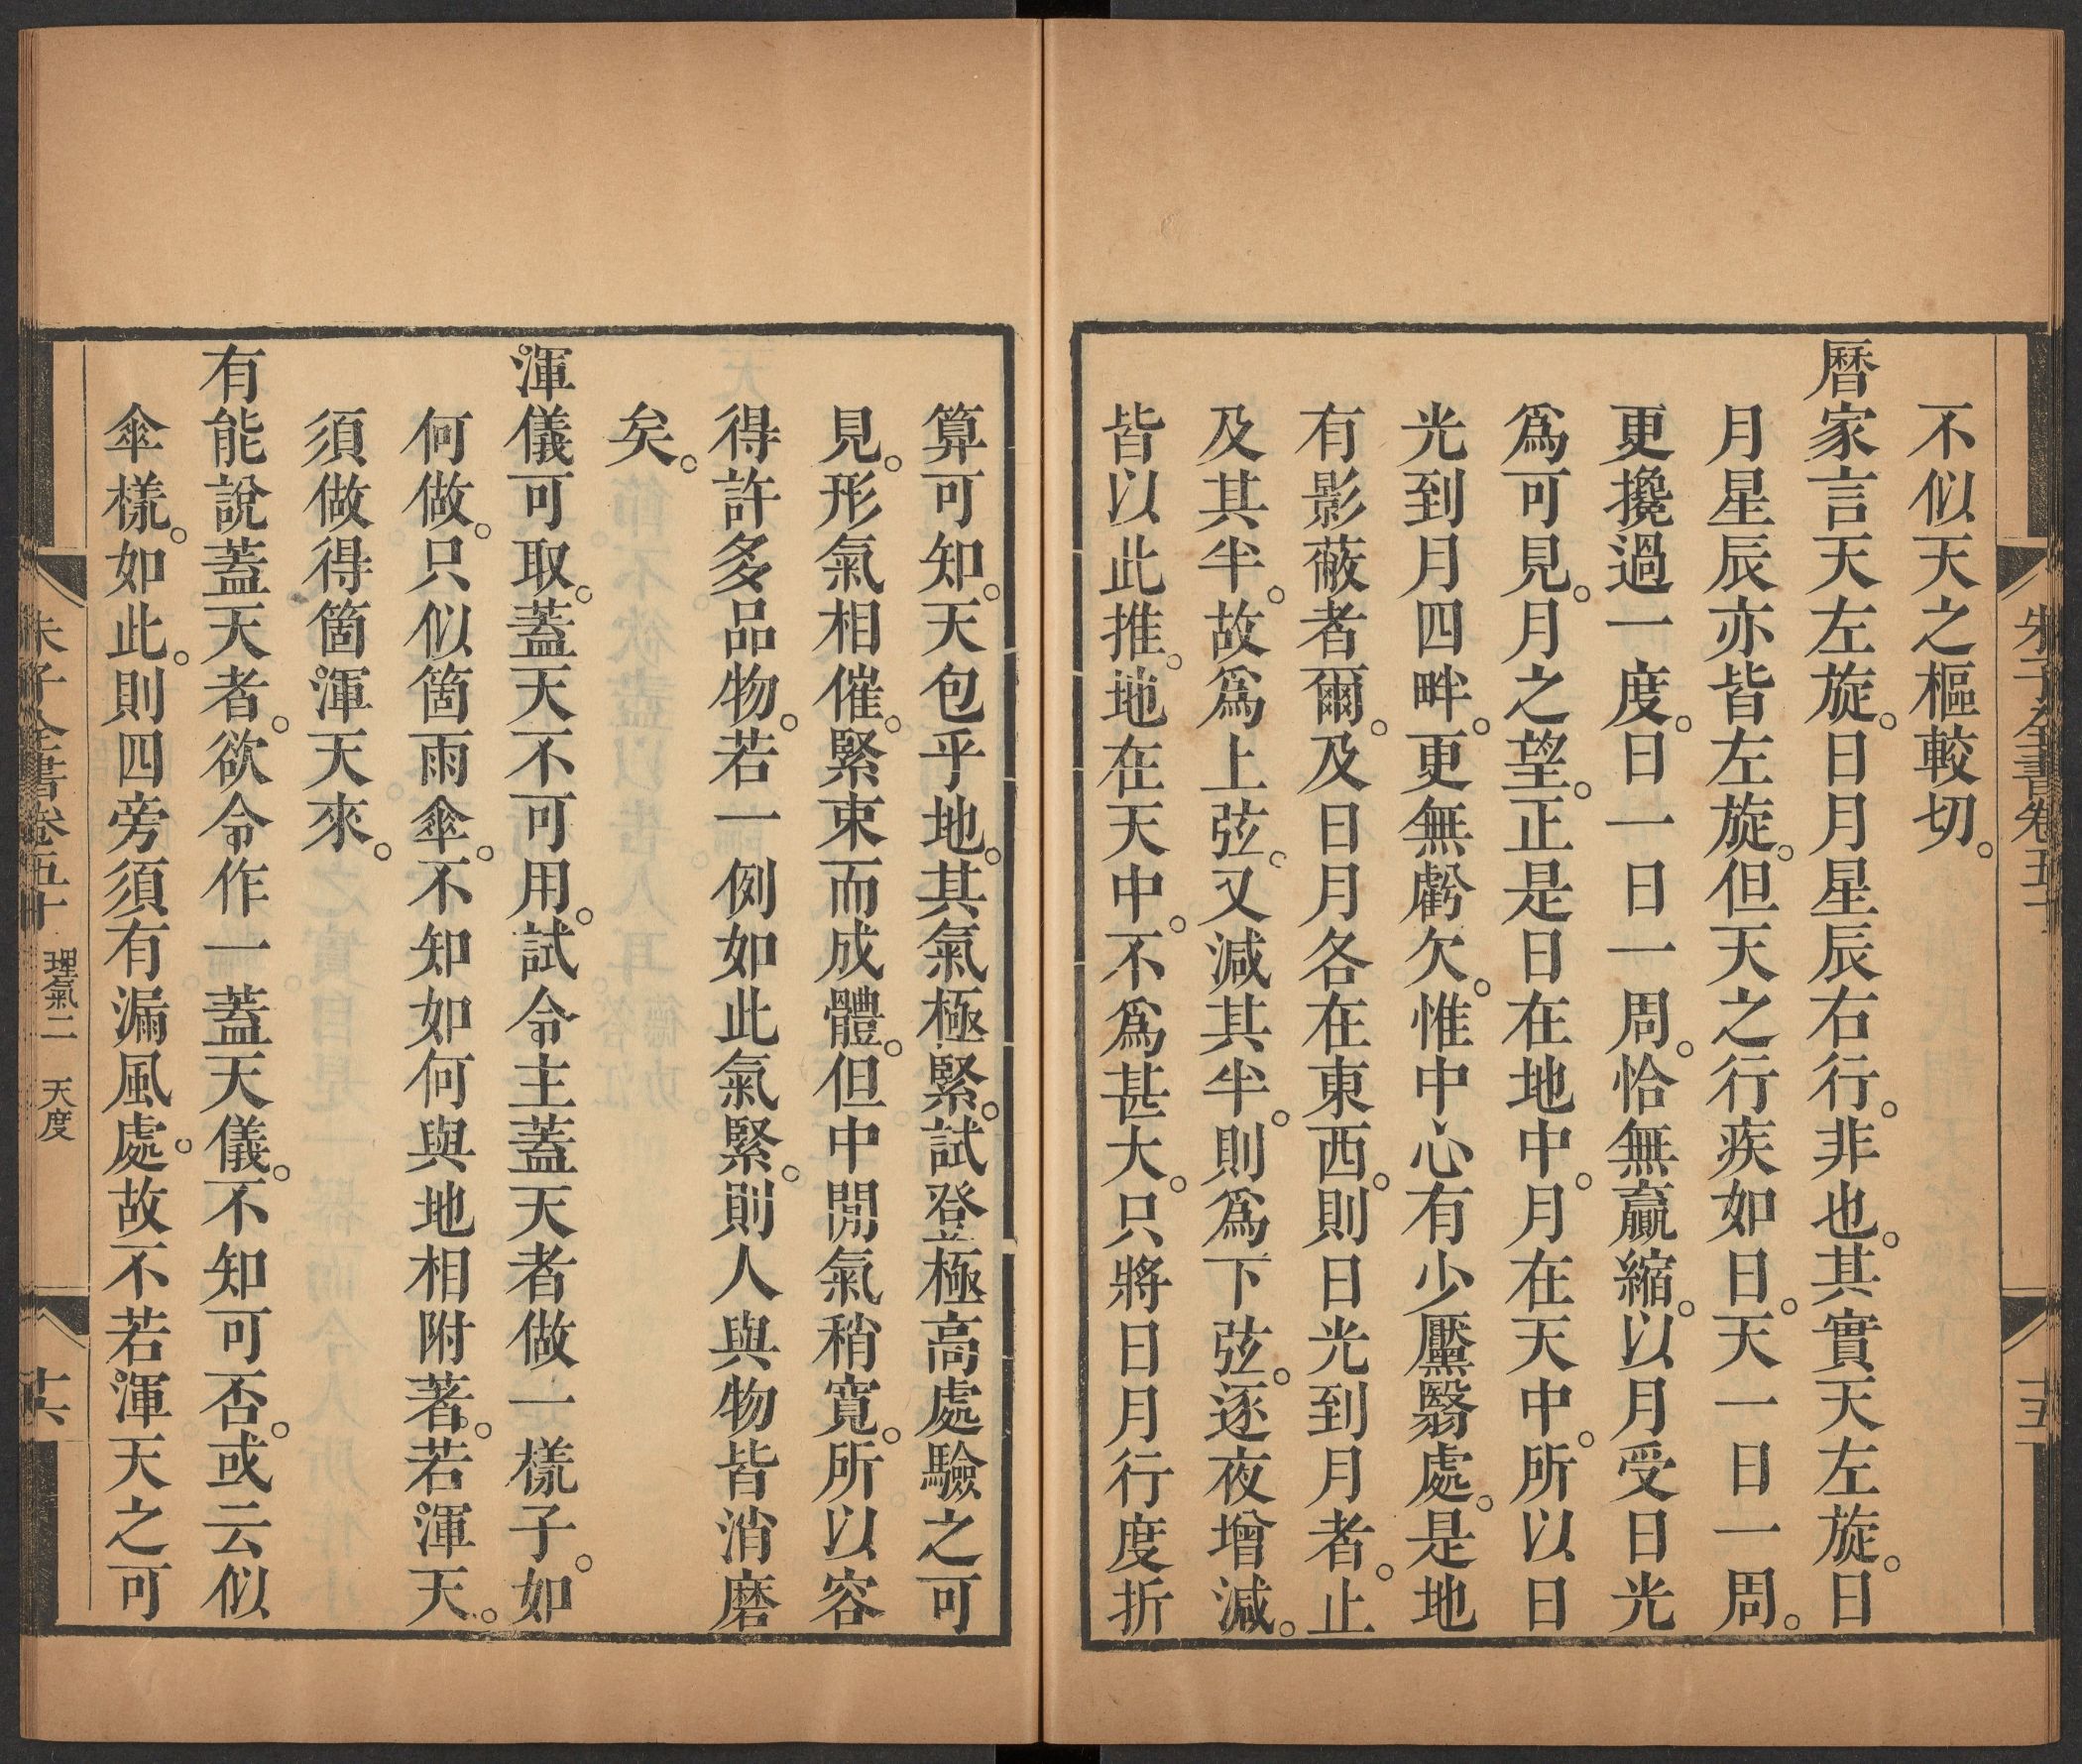 朱子全書卷五十
十五
不似天之樞較切。
曆家言天左旋。日月星辰右行。非也。其實天左旋。日
月星辰亦皆左旋。但天之行疾如日。天一日一周。
更攙過一度。日一日一周。恰無贏縮。以月受日光
爲可見。月之望。正是日在地中。月在天中。所以日
光到月四畔。更無虧欠。惟中心有少黶翳處。是地
有影蔽者爾。及日月各在東西。則日光到月者。止
及其半。故爲上弦。又減其半。則爲下弦。逐夜增減。
皆以此推。地在天中。不爲甚大。只將日月行度折
算可知。天包乎地。其氣極緊。試登極高處驗之可
見。形氣相催。緊束而成體。但中閒氣稍寬。所以容
得許多品物。若一例如此氣緊。則人與物皆消磨
矣。
渾儀可取。蓋天不可用。試令主蓋天者做一樣子。如
何做。只似箇雨傘。不知如何與地相附著。若渾天。
須做得箇渾天來。
有能說蓋天者。欲令作一蓋天儀。不知可否。或云似
傘樣。如此。則四旁須有漏風處。故不若渾天之可
朱子全書卷五十 理氣二 天度
十六